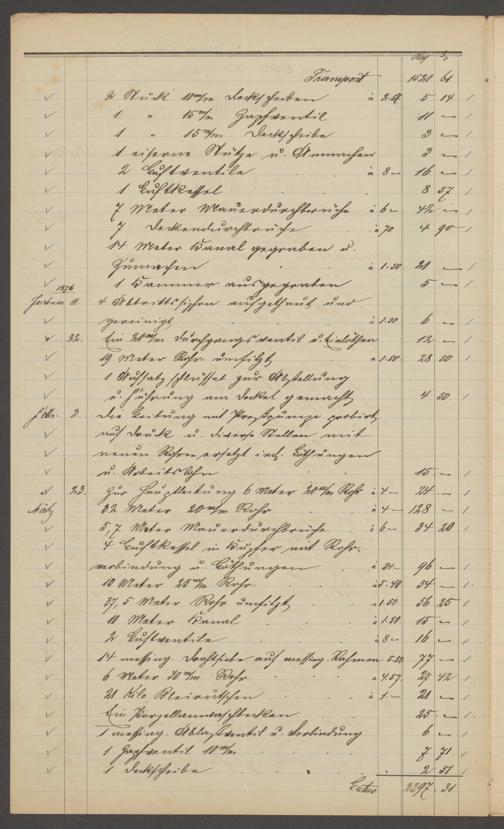 Mk ₰
Transport 1521 61
2 Stück 10 m/m Deckscheiben à 2.57 5 14
1 " 15 m/m Zapfventil 11 —
1 " 15 m/m Deckscheibe 3 —
1 eiserne Stütze u. Anmachen 3 —
2 Luftventile à 8 — 16 —
1 Luftkessel 8 57
7 Meter Mauerdurchbrüche à 6 — 42 —
7 Deckendurchbrüche à 70 4 90
14 Meter Kanal gegraben u.
Zumachen à 1.50 21 —
1 Kammer ausgegraben 5 —
1876
Januar 11. 4 Abtrittssiphon aufgethaut und
gereinigt à 1.50 6 —
22. Ein 20 m/m Durchgangsventil u. Einlöthen 12 —
19 Meter Rohr umfilzt à 1.50 28 50
1 Aufsatzschlüssel zur Abstellung
u. Führung am Deckel gemacht 4 50
Febr. 3. Die Leitung mit Presspumpe probirt
auf Druck u. diverse Stellen mit
neuen Rohren ersetzt incl. Löthungen
u. Arbeitslohn 15 —
23. Zur Hauptleitung 6 Meter 20 m/m Rohr à 4 — 24 —
März 32 Meter 20 m/m Rohr à 4 — 128 —
5,7 Meter Mauerdurchbrüche à 6 — 34 20
4 Luftkessel in Kupfer mit Rohr-
verbindung u. Löthungen à 24 — 96 —
10 Meter 25 m/m Rohr à 5.40 54 —
37,5 Meter Rohr umfilzt à 1.50 56 25
10 Meter Kanal à 1.50 15 —
2 Luftventile à 8 — 16 —
14 messing. Drahtsiebe auf messing Rahmen 5.50 77 —
6 Meter 30 m/m Rohr à 4.57 27 42
20 Kilo à 1 — 20 —
Ein Porzellanwaschbecken 25 —
1 messing. Ablassventil u. Verbindung 6 —
1 Zapfventil 10 m/m 7 71
1 Deckscheibe 2 51
Latus 2297. 31